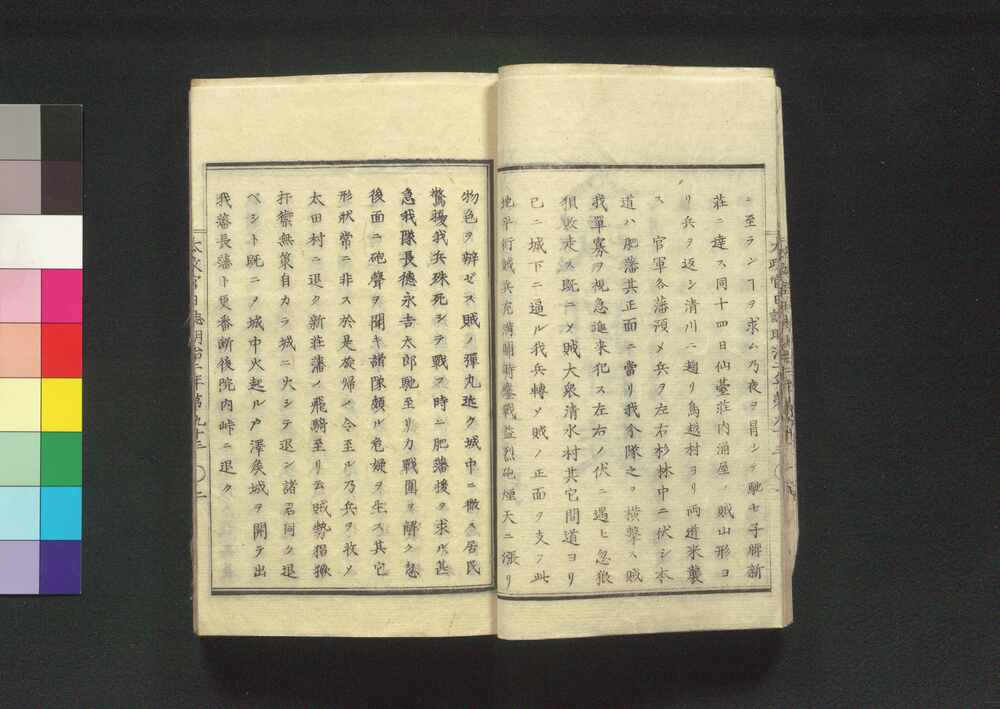 ニ至ランヿヲ求ム乃夜ヲ冒シテ馳セ子牌新
莊ニ達ス同十四日仙臺莊内涌屋ノ賊山形ヨ
リ兵ヲ返シ清川ニ趨リ鳥越村ヨリ兩道來襲
ス 官軍各藩預メ兵ヲ左右杉林中ニ伏シ本
道ハ肥藩其正面ニ當リ我分隊之ヲ横擊ス賊
我單寡ヲ視急進来犯ス左右ノ伏ニ遇ヒ忽狼
狽敗走ス既ニメ賊大衆清水村其它間道ヨリ
已ニ城下ニ逼ル我兵轉メ賊ノ正面ヲ支フ此
地平衍賊兵充薄開時鏖戰益烈砲煙天ニ漲リ
物色ヲ辨ゼス賊ノ彈丸遠ク城中ニ撒ス居民
驚擾我兵殊死シテ戰フ時ニ肥藩援ヲ求ル甚
急我隊長德永吉太郎馳至リカ戰圍ヲ解ク忽
後面ニ砲聲ヲ聞キ諸隊頗ル危疑ヲ生ス其它
形狀常ニ非ス於是旋歸ノ令至ル乃兵ヲ收メ
太田村ニ退ク新莊藩ノ飛騎至リ云賊勢猖獗
扞禦無策自カラ城ニ火シテ退ン諸君同ク退
ベシト既ニメ城中火起ル戸澤矦城ヲ開テ出
我藩長藩ト更番斷後院内峠ニ退ク
太政官日誌明治二年第九十三 〇二